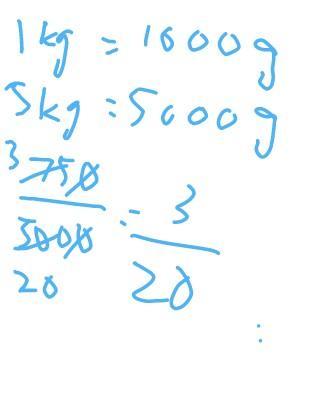 1kg = 1000g
5kg = 5000g
3
750
5000
20
= 3
20
: